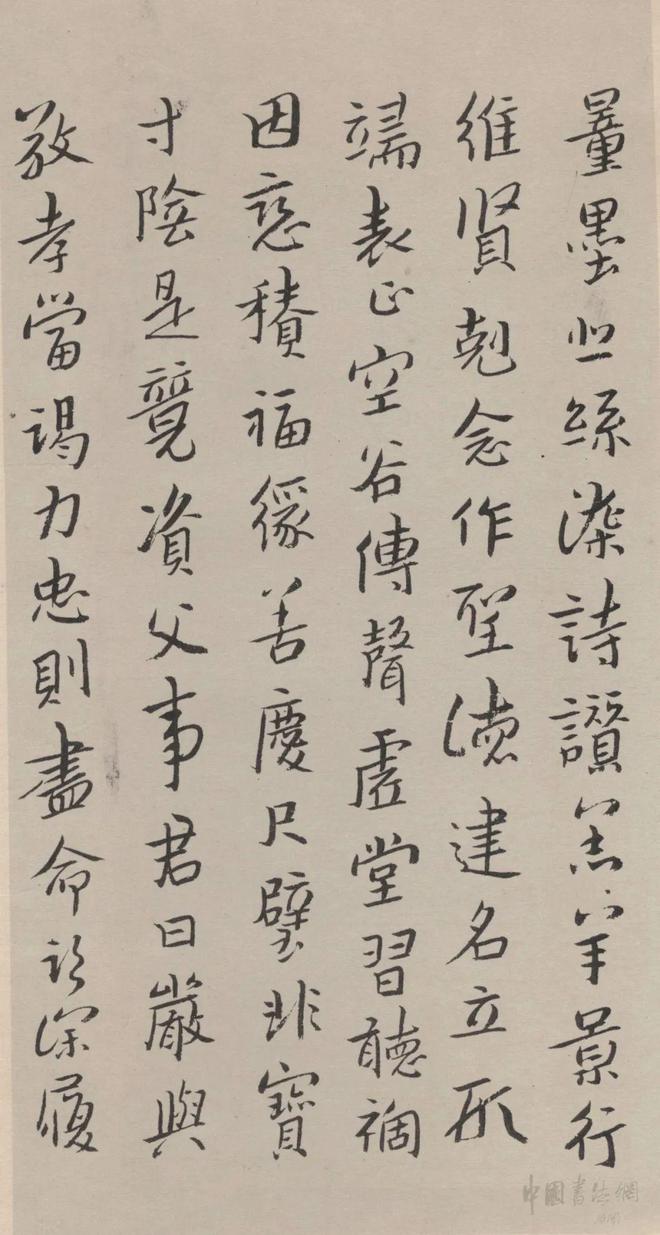 量墨悲絲染詩讃羔羊景行
維賢剋念作聖德建名立形
端表正空谷傳聲虛堂習聽禍
因惡積福緣善慶尺璧非寶
寸陰是競資父事君曰嚴與
敬孝當竭力忠則盡命臨深履
中國書法網